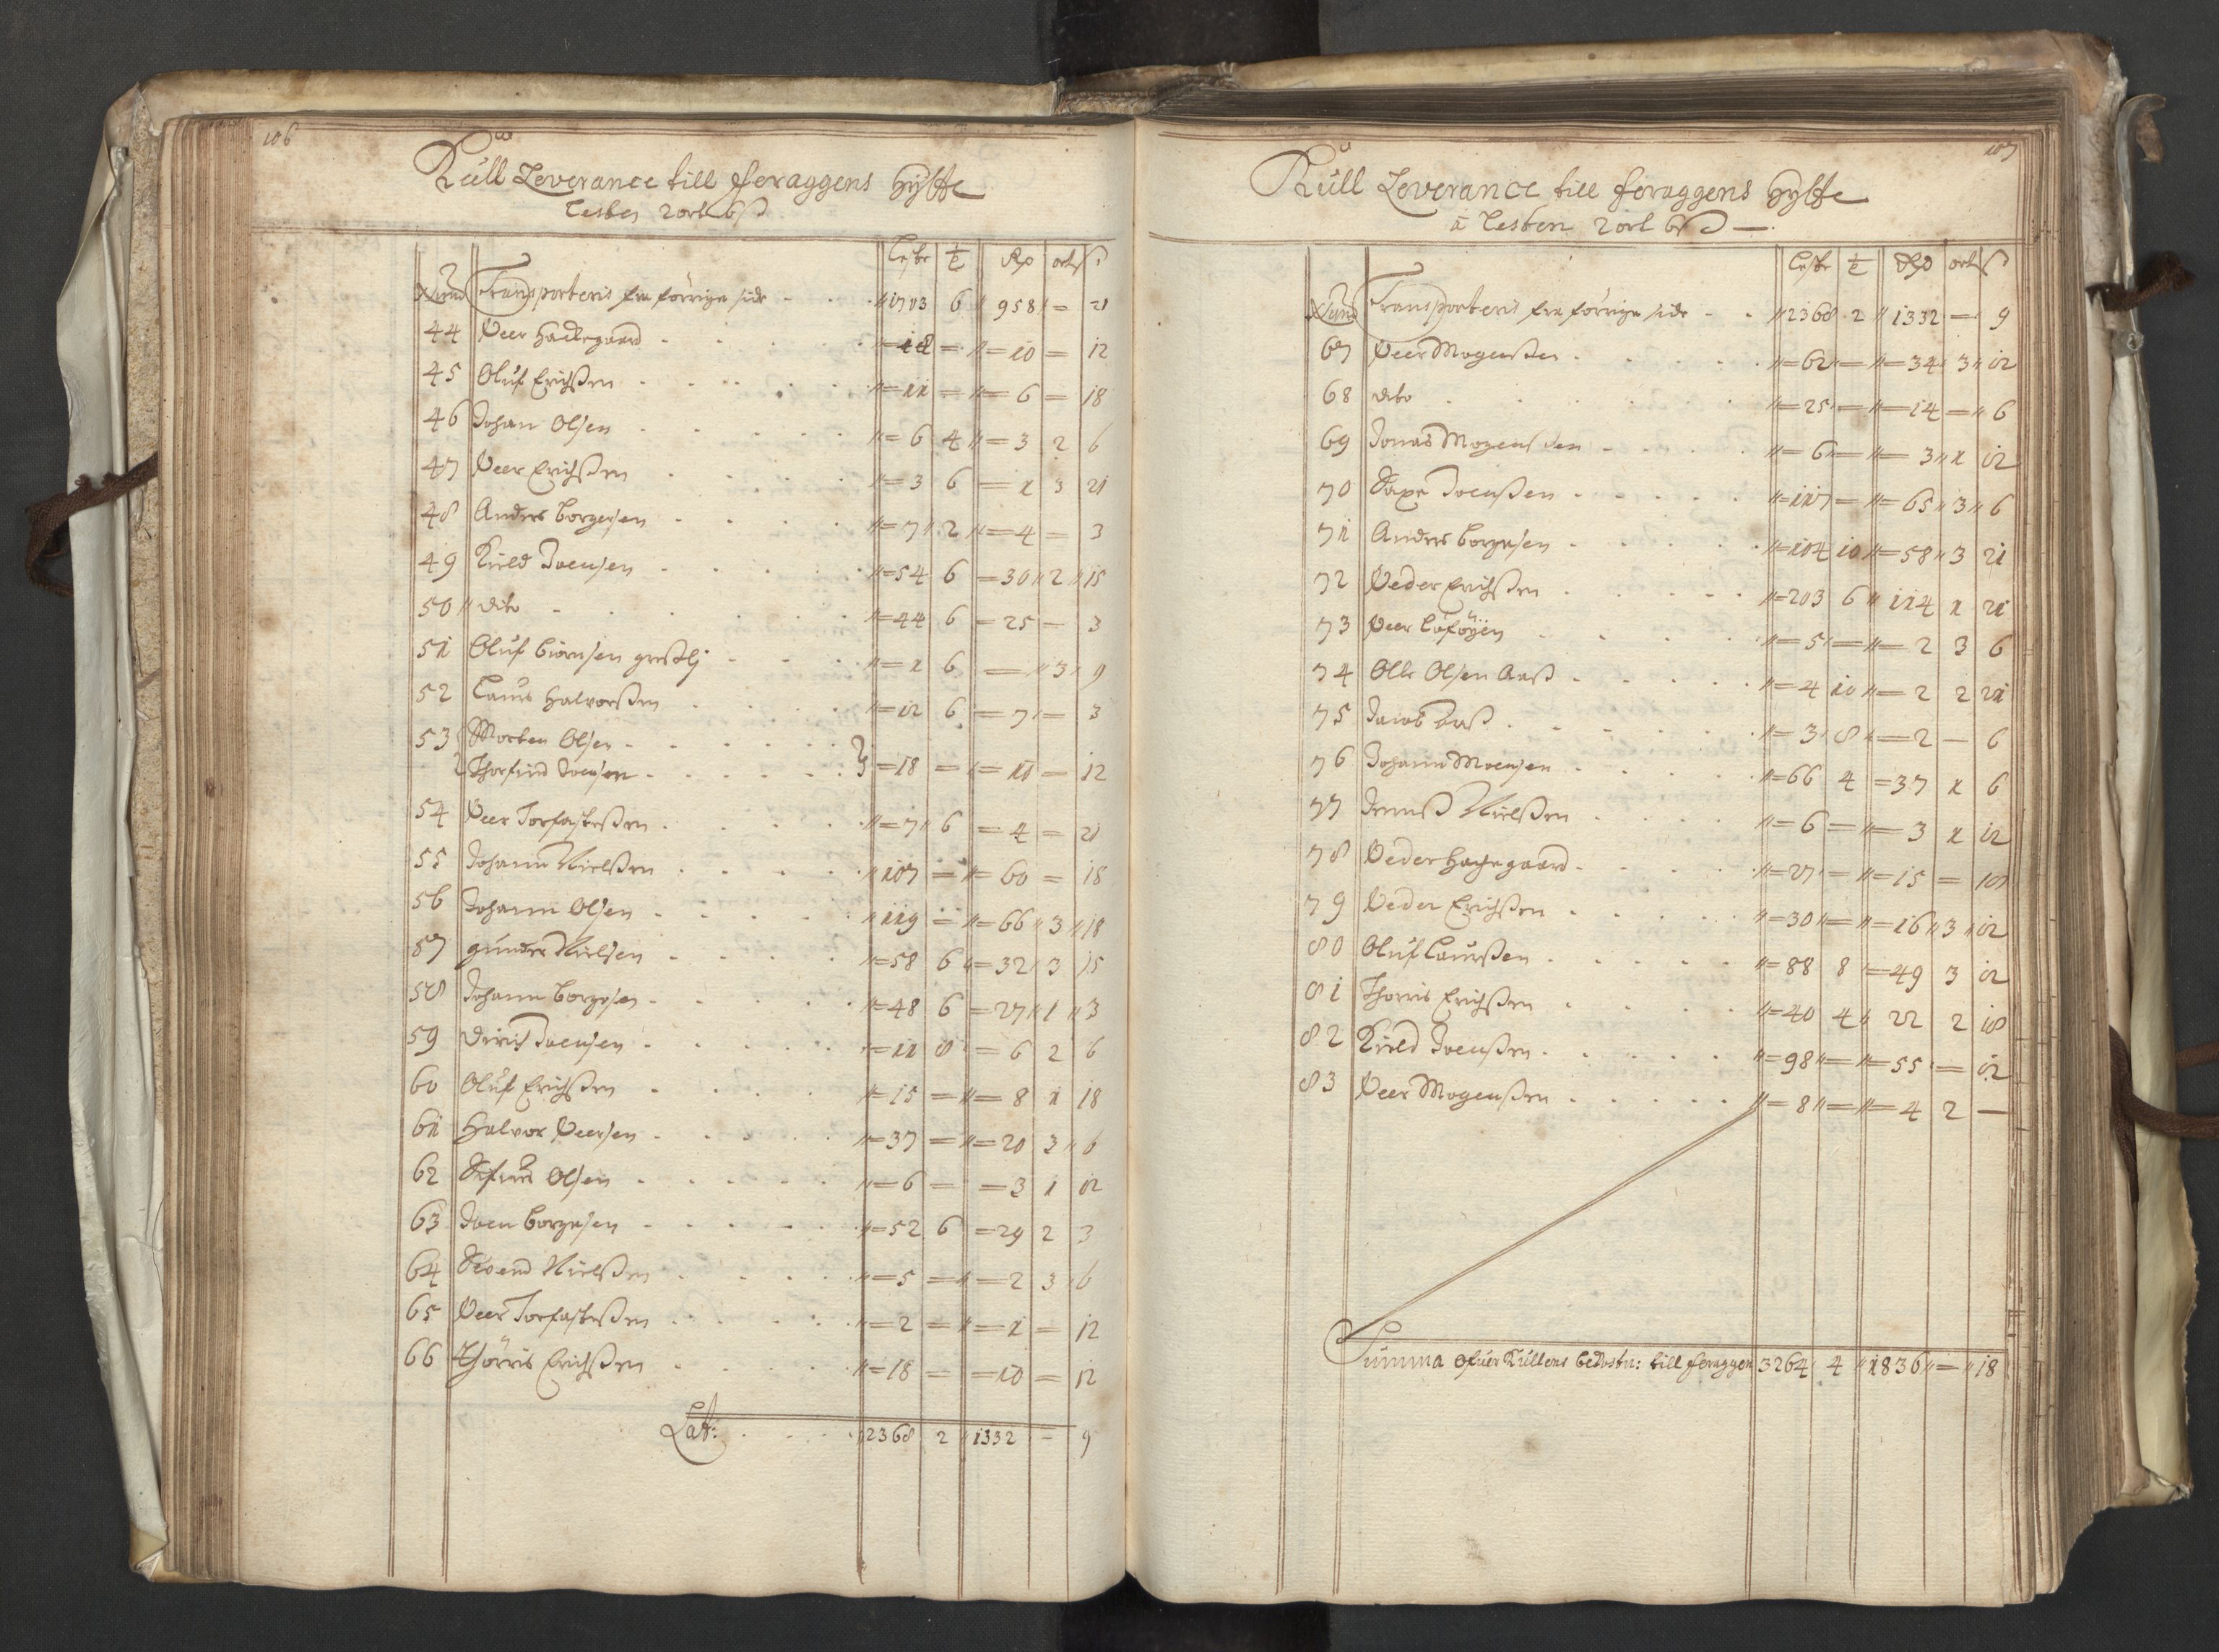 106
Kull Leverance till feraggens Hytte
Lesten 2 ort 6 ß
Leste t Rd ort ß
Num Transporteris fra forrige side - 1703 6 958 = 21
44 Peer Hachegaard - = 18 = = 10 = 12
45 Oluf Erichßen - = 11 = = 6 = 18
46 Johan Olsen - = 6 4 = 3 2 6
47 Peer Erichßen - = 3 6 = 1 3 21
48 Anders Borgersen - = 7 2 = 4 = 3
49 Kield Joensen - = 54 6 = 30 2 15
50 dito - = 44 6 = 25 = 3
51 Oluf Biørnsen - = 1 6 = 3 9
52 Laurs Halvorßen - = 12 6 = 7 = 3
53 Morten Olsen -
Thorfind Joensen - = 18 = = 10 = 12
54 Peer Torfasteßen - = 7 6 = 4 = 21
55 Johann Nielßen - 107 = = 60 = 18
56 Johann Olsen - 119 = = 66 3 18
57 gunder Nielsen - = 58 6 = 32 3 15
58 Johann Borgesen - = 48 6 = 27 1 3
59 Dirich Joensen - = 11 8 = 6 2 6
60 Oluf Erichßen - = 15 = = 8 1 18
61 Halvor Peersen - = 37 = = 20 3 6
62 Olsen - = 6 = = 3 1 12
63 Joen Borgesen - = 52 6 = 29 2 3
64 Svend Nielßen - = 5 = = 2 3 6
65 Peer Torfasteßen - = 2 = = 1 = 12
66 Thörris Erichßen - = 18 = = 10 = 12
Lat: 2368 2 1332 - 9
107
Kull Leverance till feraggens Hytte
à Lesten 2 ort 6 ß
Leste t Rd ort ß
Num Transporteris fra forrige side - 2368 2 1332 = 9
67 Peer Mogenßen - = 62 = = 34 3 12
68 dito - = 25 = = 14 = 6
69 Jonas Mogensen - = 6 = = 3 1 12
70 Saxe Joenßen - = 117 = = 65 3 6
71 Anders Borgesen - = 104 10 = 58 3 21
72 Peder Erichßen - = 203 6 114 1 21
73 Peer - = 5 = = 2 3 6
74 Olle Olsen Aaß - = 4 10 = 2 2 21
75 Jacob Aaß - = 3 8 = 2 - 6
76 Johann Moensen - = 66 4 = 37 1 6
77 Jennß Nielßen - = 6 = = 3 1 12
78 Peder Hachegaard - = 27 = = 15 = 18
79 Peder Erichßen - = 30 = = 16 3 12
80 Oluf Laurßen - = 88 8 = 49 3 12
81 Thorris Erichßen - = 40 4 22 2 18
82 Kield Joenßen - = 98 = = 55 = 12
83 Peer Mogenßen - = 8 = = 4 2 -
Summa ofuer Kullens bekostn: till feraggen 3264 4 1836 = 18